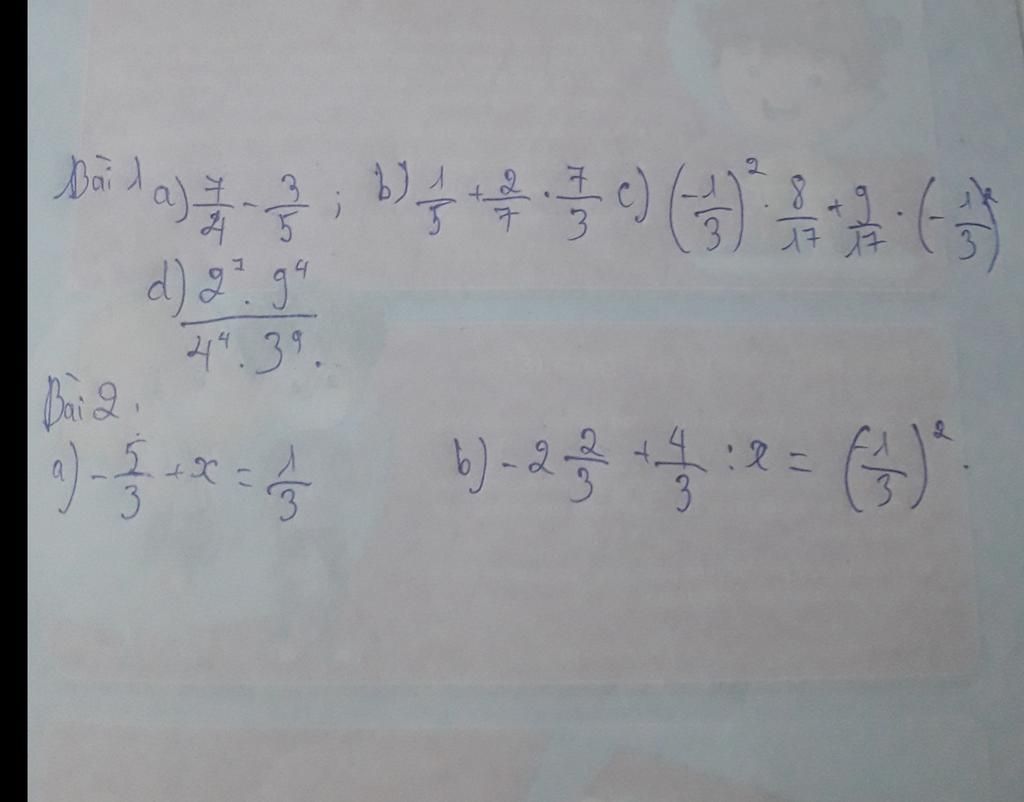 Bài 1 a) 7/4 - 3/5 ; b) 1/5 + 2/7 . 7/3 c) (-1/3)² . 8/17 + 9/17 . (-1/3)²
d) 2⁷ . 9⁴ / 4⁴ . 3⁹ .
Bài 2 .
a) - 5/3 + x = 1/3 b) - 2 2/3 + 4/3 : x = (-1/3)² .